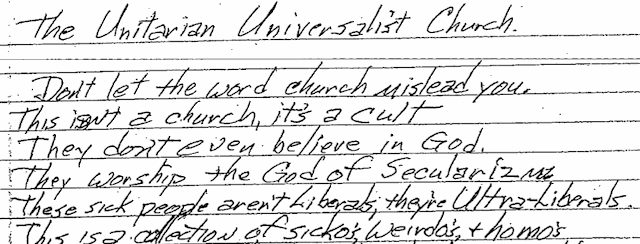 The Unitarian Universalist Church.
Don't let the word church mislead you.
This isn't a church, it's a cult
They don't even believe in God.
They worship the God of Secularizm
These sick people aren't Liberals, they're Ultra-Liberals.
This is a collection of sicko's, Weirdo's, + homo's